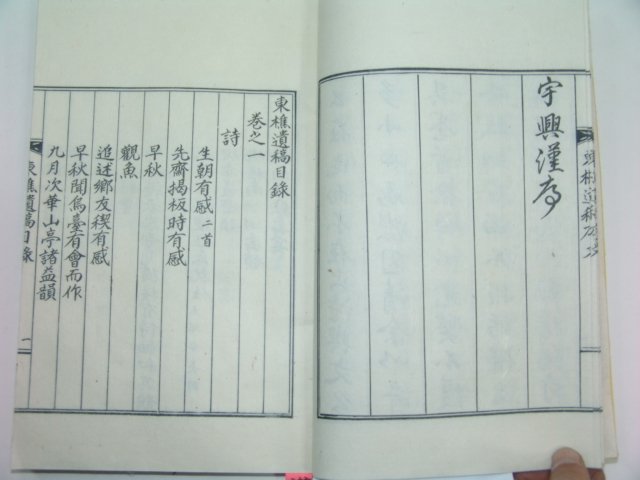 宇興漢序
東樵遺稿目錄
卷之一
詩
生朝有感二首
先齋揭板時有感
早秋
觀魚
追述鄉友稧有感
早秋聞鳥臺有會而作
九月次華山亭諸益韻
東樵遺稿目錄
一